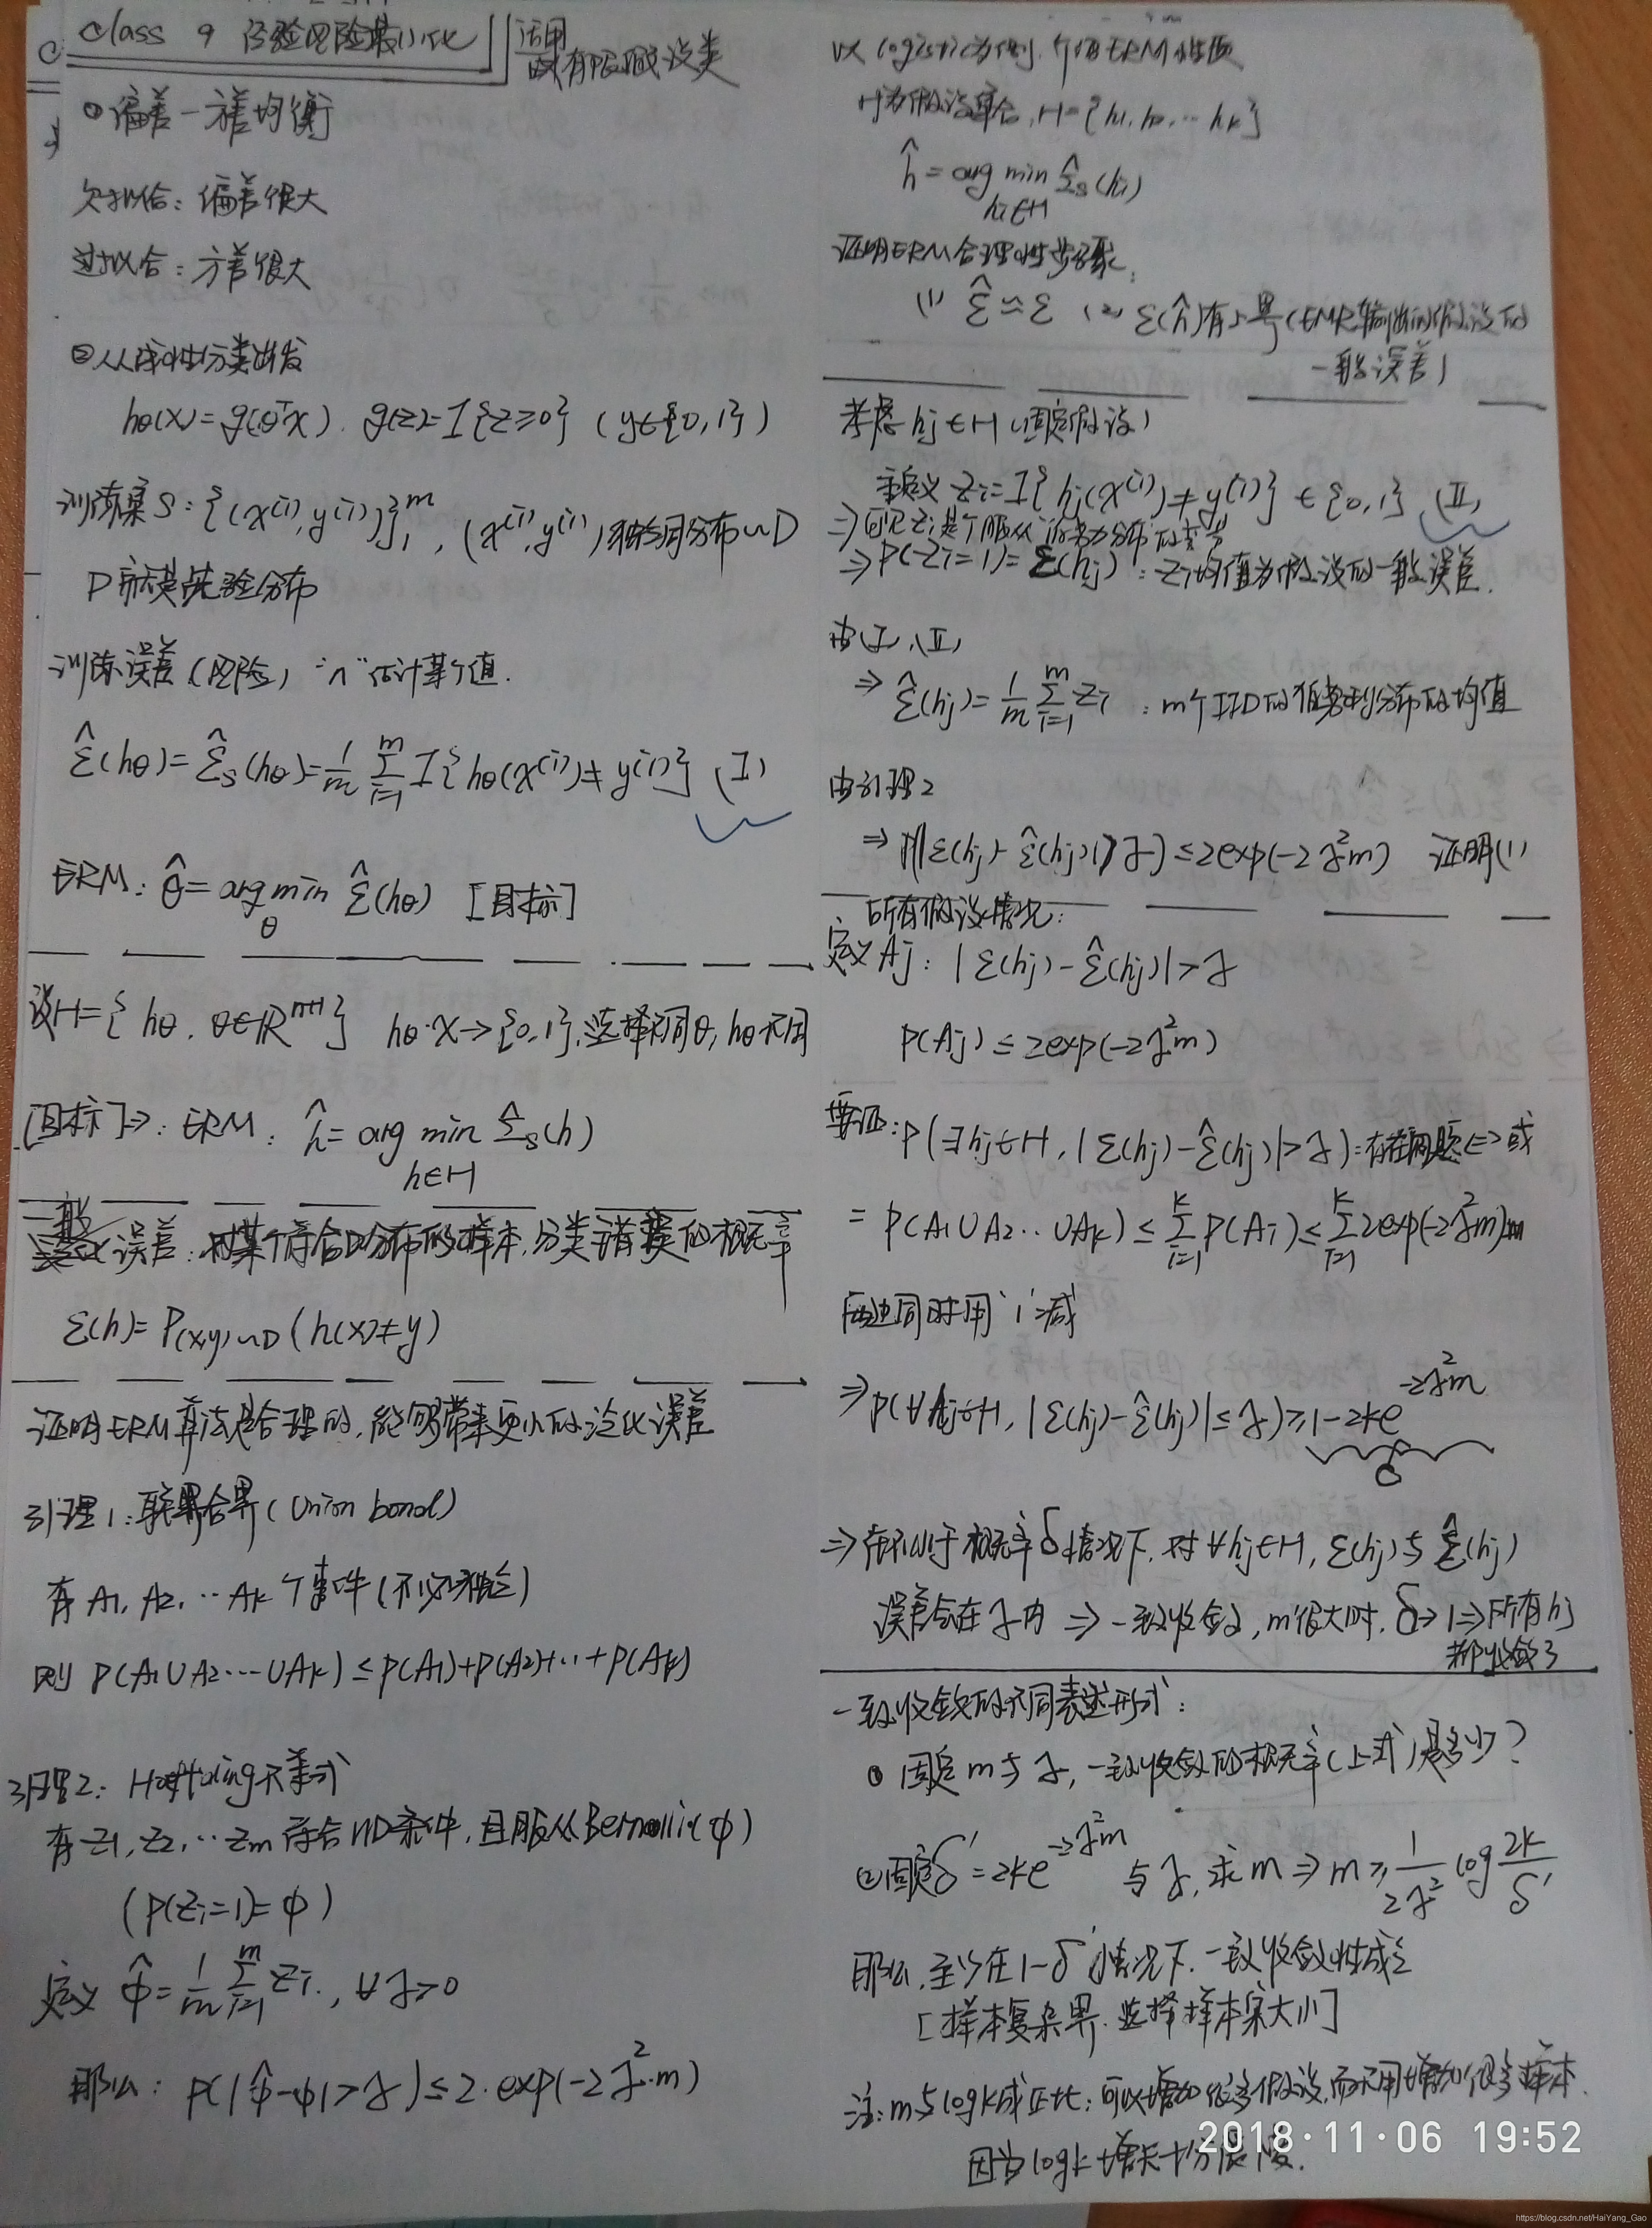 Class 9 经验风险最小化
适用
有限假设类
① 偏差-方差均衡
欠拟合：偏差很大
过拟合：方差很大
② 从线性分类出发
hθ(x)=g(θᵀx). g(z)=I{z≥0} (y∈{0,1})
训练集S：{(x⁽ⁱ⁾,y⁽ⁱ⁾)}₁ᵐ, (x⁽ⁱ⁾,y⁽ⁱ⁾)独立同分布~D
训练误差(风险) "∧"估计某个值.
ε̂(hθ)=ε̂s(hθ)=1/m Σᵢ₌₁ᵐ I{hθ(x⁽ⁱ⁾)≠y⁽ⁱ⁾} (I)
ERM: θ̂=arg minθ ε̂(hθ) [目标]
设H={hθ, θ∈ℝⁿ⁺¹} hθ·X→{0,1},选择不同θ, hθ不同
[目标]⇒: ERM: ĥ=arg min h∈H ε̂s(h)
一般误差：对某个符合D分布的样本,分类错误的概率
ε(h)=P(x,y)~D(h(x)≠y)
证明ERM算法是合理的,能够带来更小的泛化误差
引理1:联合界(Union bond)
有A1, A2, ··· Ak个事件(不必独立)
则 P(A1∪A2···∪Ak)≤P(A1)+P(A2)+···+P(Ak)
引理2: 不等式
有z1, z2, ··zm符合IID条件,且服从Bernolli(φ)
(P(zi=1)=φ)
定义 φ̂=1/m Σᵢ₌₁ᵐ zi., ∀γ>0
那么: P(|φ̂-φ|>γ)≤2·exp(-2γ²·m)
以logistic为例.
H为假设集合, H={h1, h2, ··· hk}
ĥ=arg min hi∈H ε̂s(hi)
证明ERM合理性步骤:
(1) ε̂≈ε (2) ε(ĥ)有上界(EMR输出的假设的
一般误差)
考虑hj∈H(固定假设)
定义 zi=I{hj(x⁽ⁱ⁾)≠y⁽ⁱ⁾}∈{0,1} (II)
⇒可见zi是个服从伯努力分布的变量
⇒P(zi=1)=ε(hj):zi均值为假设的一般误差.
由(I),(II)
⇒ ε̂(hj)=1/m Σᵢ₌₁ᵐ zi : m个IID的伯努利分布的均值
由引理2
⇒P(|ε(hj)-ε̂(hj)|>γ)≤2exp(-2γ²m) 证明(1)
所有假设情况:
定义Aj: |ε(hj)-ε̂(hj)|>γ
P(Aj)≤2exp(-2γ²m)
要证:P(∃hj∈H, |ε(hj)-ε̂(hj)|>γ):存在问题⇔或
=P(A1∪A2··∪Ak)≤Σᵢ₌₁ᵏ P(Ai)≤Σᵢ₌₁ᵏ 2exp(-2γ²m)
两边同时用'1'减
⇒P(∀hj∈H, |ε(hj)-ε̂(hj)|≤γ)≥1-2ke⁻²ᵞ²ᵐ
δ
⇒在不小于概率δ情况下, 对∀hj∈H, ε(hj)与ε̂(hj)
误差会在γ内 ⇒ 一致收敛, m很大时, δ→1⇒所有hj
都收敛了
一致收敛的不同表述形式:
① 固定m与γ, 一致收敛的概率(上式)是多少?
②固定δ'=2ke⁻²ᵞ²ᵐ与γ, 求m ⇒ m≥1/2γ² log 2k/δ'
那么, 至少在1-δ'情况下, 一致收敛性成立
[样本复杂界. 选择样本集大小]
注:m与logk成正比:可以增加很多假设,而不用增加很多样本.
因为logk增长十分缓慢.
2018·11·06 19:52
https://blog.csdn.net/HaiYang_Gao